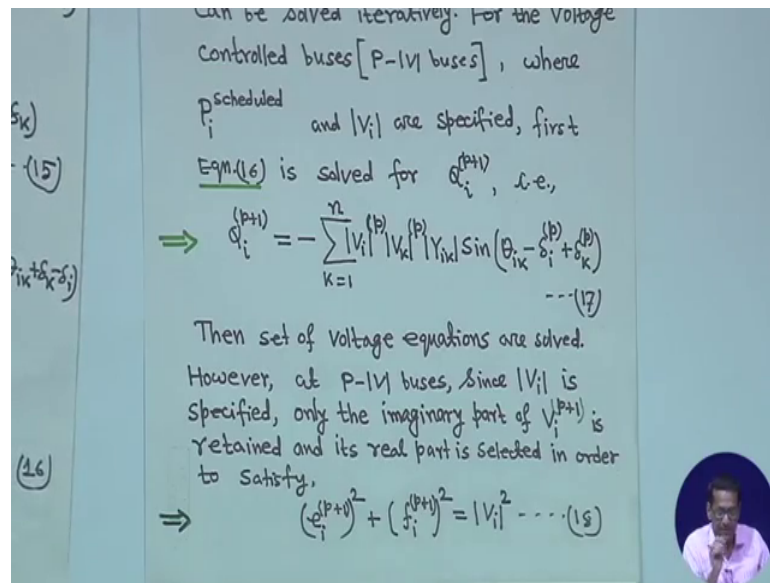 can be solved iteratively. For the voltage
controlled buses [P-|V| buses], where
P_i^scheduled and |V_i| are specified, first
Eqn.(16) is solved for Q_i^(p+1), i.e.,
⇒ Q_i^(p+1) = - ∑_{k=1}^{n} |V_i|^(p) |V_k|^(p) |Y_ik| Sin(θ_ik - δ_i^(p) + δ_k^(p))
---(17)
Then set of voltage equations are solved.
However, at P-|V| buses, since |V_i| is
specified, only the imaginary part of V_i^(p+1) is
retained and its real part is selected in order
to satisfy,
⇒ (e_i^(p+1))^2 + (f_i^(p+1))^2 = |V_i|^2 ----(18)
δ_k)
--(15)
θ_ik+δ_k-δ_i)
(16)